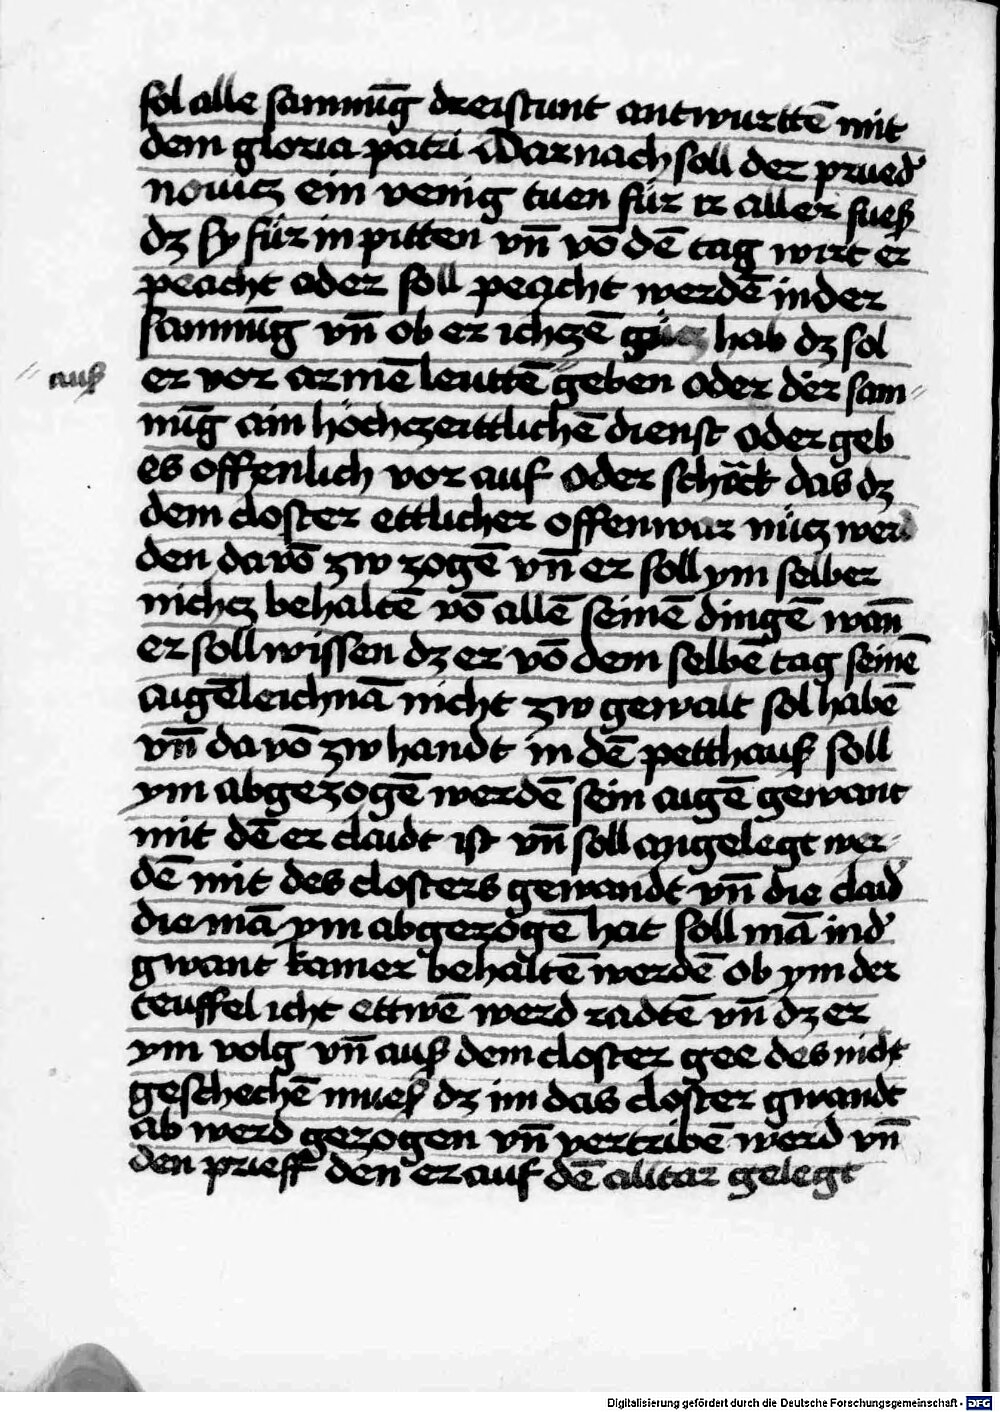 sol alle sammūg dreistunt antwurttē mit
dem gloria patri Darnach soll der prued'
nouicz ein venig tuen für ir aller fueß
dz sy für in pitten vn̄ vō dē tag wirt er
peacht oder soll peacht werdē in der
sammūg vn̄ ob er ichczē hab dz sol
auß
er vor armē leuttē geben oder der sam„
mūg ain hochczeittlichē dienst oder geb
es offenlich vor auf oder schāck das dz
dem closter ettlicher offenwar nücz wer
den davō zw zogē vn̄ er soll ym selber
nichcz behaltē vō allē seinē dingē wān
er soll wissen dz er vō dem selbē tag seinē
aigē leichnā nicht zw gewalt sol habē
vn̄ da vō zw handt in dē petthauß soll
ym abgezogē werdē sein aigē gewant
mit dē er claidt ist vn̄ soll angelegt wer
dē mit des closters gewandt vn̄ die claid'
die mā ym abgezogē hat soll mā in d'
gwant kamer behaltē werdē ob ym der
teuffel icht ettwē werd radtē vn̄ dz er
ym volg vn̄ auß dem closter gee des nicht
geschechē mueß dz im das closter gwandt
ab werd gezogen vn̄ vertribē werd vn̄
den prieff den er auf dē alltar gelegt
Digitalisierung gefördert durch die Deutsche Forschungsgemeinschaft - DFG